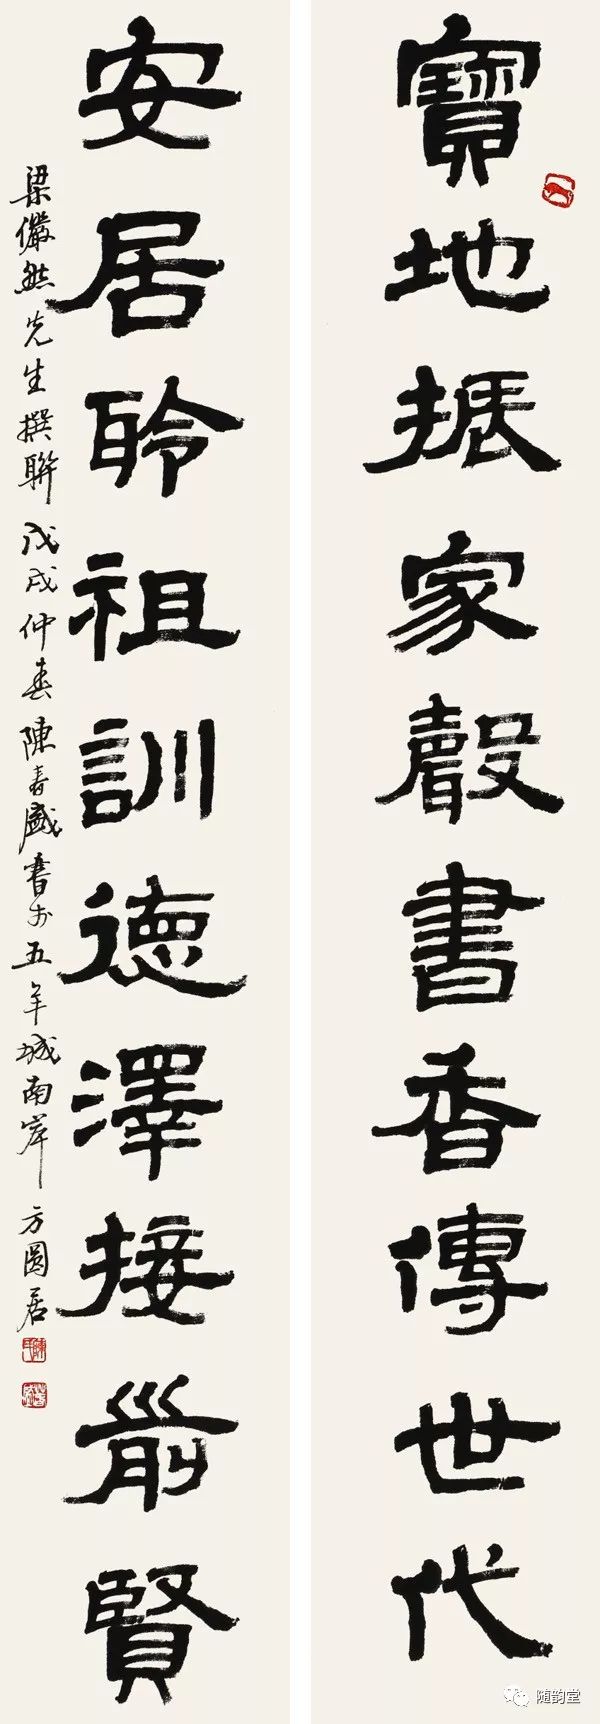 寶地振家聲書香傳世代
安居聆祖訓德澤接前賢
梁儼然先生撰聯戊戌仲春陳春盛書於五羊城南岸方圓居
随韵堂